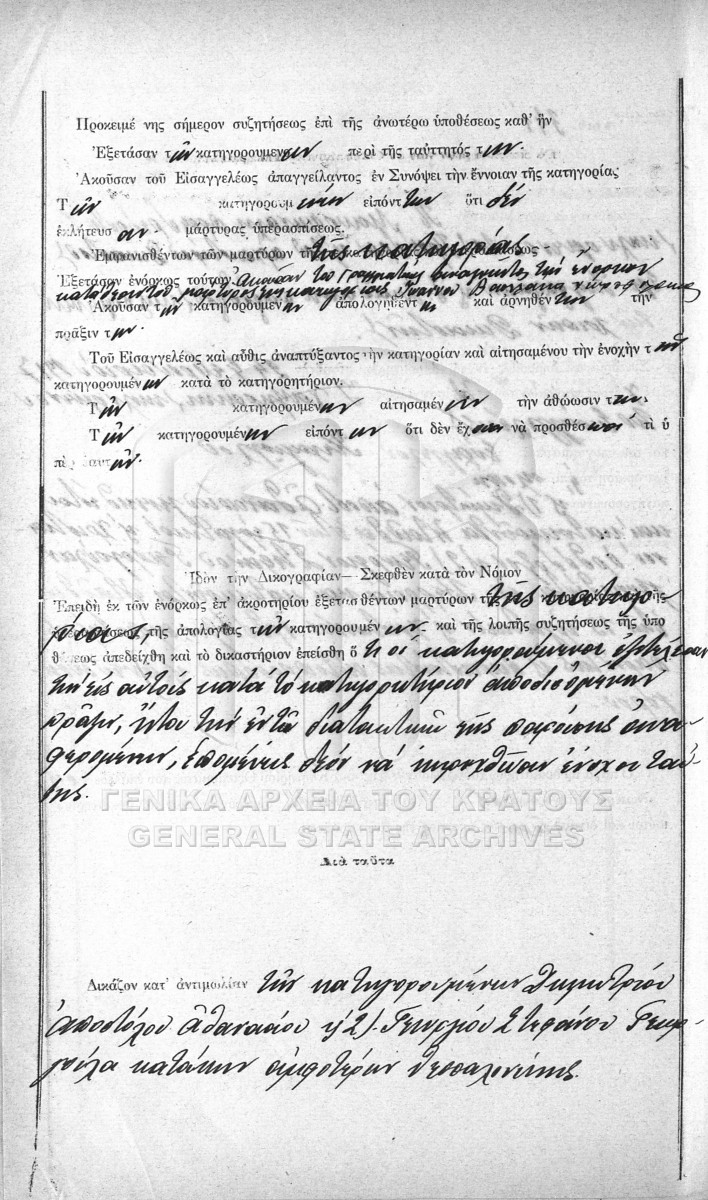 Προκειμέ νης σήμερον συζητήσεως ἐπὶ τῆς ἀνωτέρω ὑποθέσεως καθ' ἣν
Ἐξετάσαν τῶν κατηγορουμένων περὶ τῆς ταὐτητός των.
Ἀκούσαν τοῦ Εἰσαγγελέως ἀπαγγείλαντος ἐν Συνόψει τὴν ἔννοιαν τῆς κατηγορίας
Τῶν κατηγορουμένων εἰπόντων ὅτι δὲν
ἐκλήτευσαν μάρτυρας ὑπερασπίσεως.
Ἐμφανισθέντων τῶν μαρτύρων τῆς κατηγορίας
Ἐξετάσαν ἐνόρκως τούτων Ἀκούσαν τοῦ Γραμματέως ἀναγνόντος τὴν ἔνορκον
κατάθεσιν τοῦ μάρτυρος κατηγορίας Ἰωάννου
Ἀκούσαν τῶν κατηγορουμένων ἀπολογηθέντων καὶ ἀρνηθέντων τὴν
πρᾶξιν των.
Τοῦ Εἰσαγγελέως καὶ αὖθις ἀναπτύξαντος τὴν κατηγορίαν καὶ αἰτησαμένου τὴν ἐνοχὴν τῶν
κατηγορουμένων κατὰ τὸ κατηγορητήριον.
Τῶν κατηγορουμένων αἰτησαμένων τὴν ἀθώωσιν των.
Τῶν κατηγορουμένων εἰπόντων ὅτι δὲν ἔχουν νὰ προσθέσωσι τὶ ὑ
πὲρ ἑαυτῶν.
Ἰδὸν τὴν Δικογραφίαν — Σκεφθὲν κατὰ τὸν Νόμον
Ἐπειδὴ ἐκ τῶν ἐνόρκως ἐπ' ἀκροτηρίου ἐξετασθέντων μαρτύρων τῆς κατηγο
ρίας τῆς ἀπολογίας τῶν κατηγορουμένων καὶ τῆς λοιπῆς συζητήσεως τῆς ὑπο
θέσεως ἀπεδείχθη καὶ τὸ δικαστήριον ἐπείσθη ὅτι οἱ κατηγορούμενοι ἐξετέλεσαν
τὴν εἰς αὐτοὺς κατὰ τὸ κατηγορητήριον ἀποδιδομένην
πρᾶξιν, ἤτοι τὴν ἐν τῷ διατακτικῷ τῆς παρούσης ἀνα
φερομένην, ἑπομένως δέον νὰ κηρυχθῶσιν ἔνοχοι ταύ
της.
ΓΕΝΙΚΑ ΑΡΧΕΙΑ ΤΟΥ ΚΡΑΤΟΥΣ
GENERAL STATE ARCHIVES
Διὰ ταῦτα
Δικάζον κατ' ἀντιμωλίαν τῶν κατηγορουμένων Δημητρίου
Ἀποστόλου Ἀθανασίου ἢ 2). Γεωργίου Στεφάνου Γεωρ
γούλα κατοίκων ἀμφοτέρων Θεσσαλονίκης.